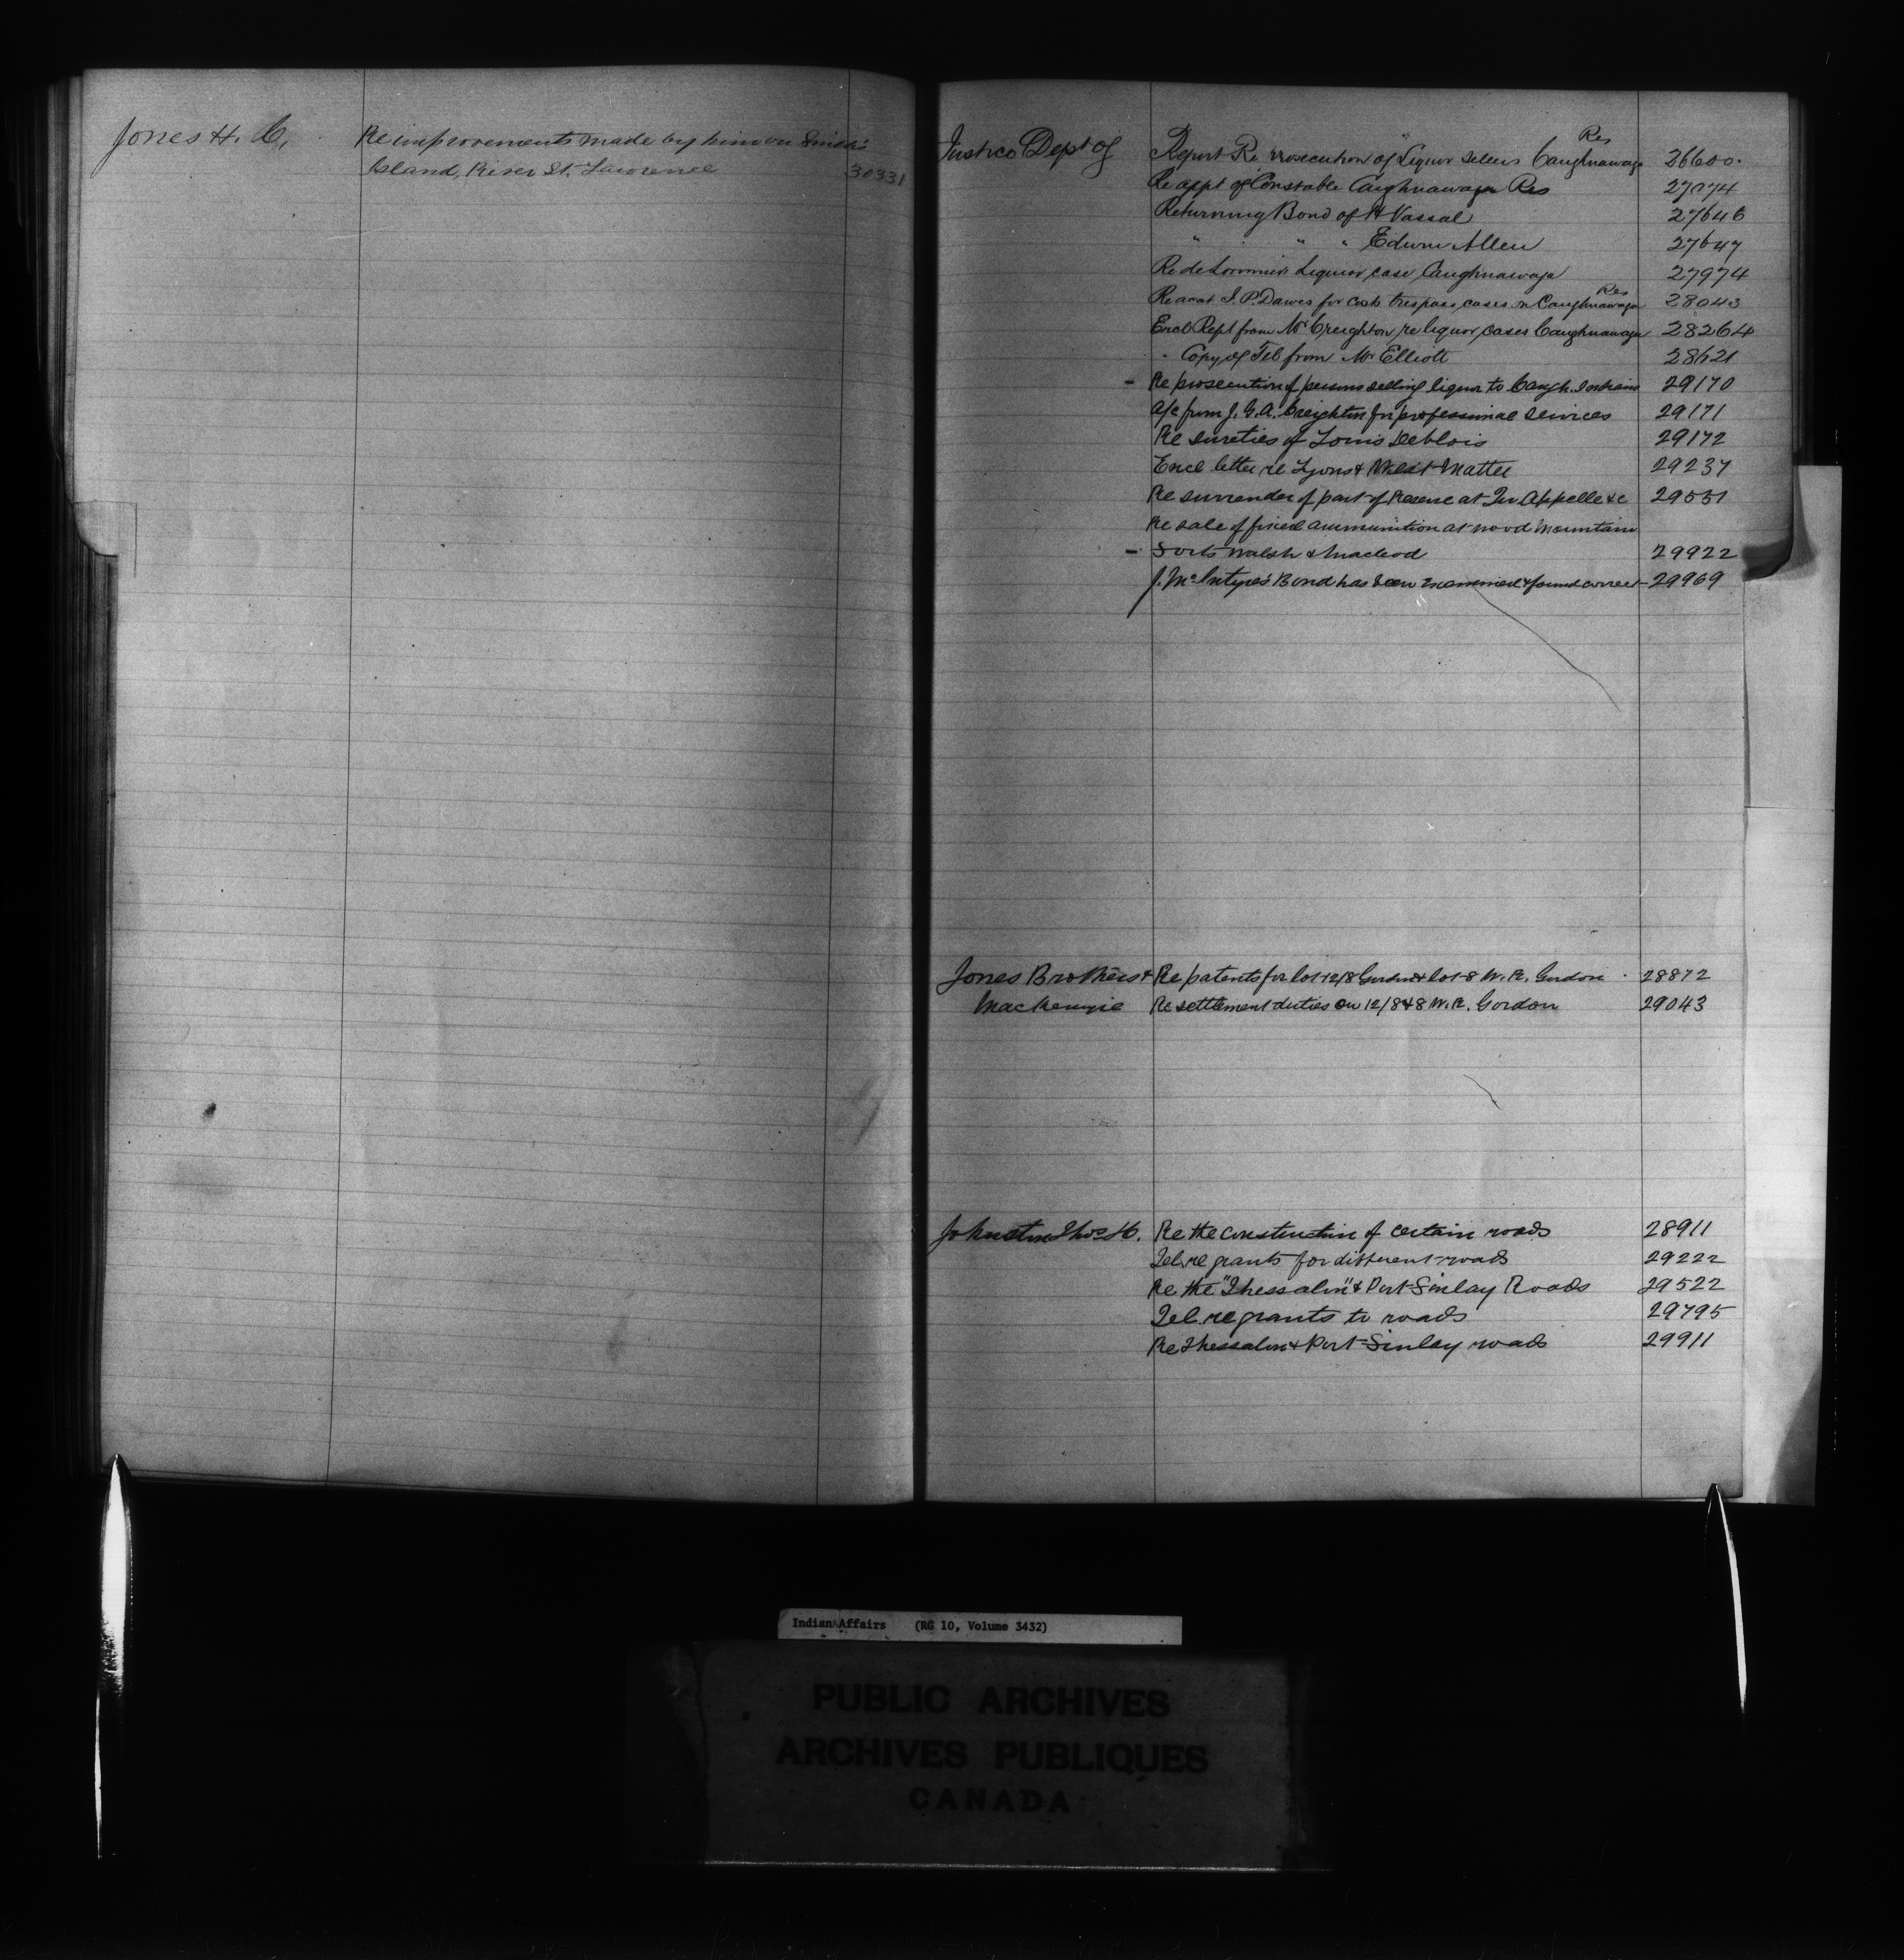 Jones H. C. Re improvements made by him on Smith's
Island, River St. Lawrence 30331
Justice Dept of Report Re prosecution of Liquor sellers Caughnawaga Res 26600
Re appt of Constable Caughnawaga Res 27074
Returning Bond of H Vassal 27646
" " " Edwin Allen 27647
Re deLorimier Liquor case Caughnawaga 27974
Re acct J. P. Dawes for costs trespass cases on Caughnawaga Res 28043
Encl Rept from Mr Creighton re liquor cases Caughnawaga 28264
" Copy of Tel from Mr Elliott 28621
- Re prosecution of persons selling liquor to Caugh. Indians 29170
a/c from J. G. A. Creighton for professional services 29171
Re sureties of Louis Deblois 29172
Encl letter re Lyons & West Matter 29237
Re surrender of part of Reserve at Qu'Appelle &c 29551
Re sale of fixed ammunition at Wood Mountain
- Forts Walsh & Macleod 29922
J. McIntyre's Bond has been examined & found correct - 29969
Jones Brothers & Re patents for lot 12/8 Gordon & lot 8 W. R. Gordon 28872
Mackenzie Re settlement duties on 12/8 & 8 W. R. Gordon 29043
Johnston Thos H. Re the construction of certain roads 28911
Tel. re grants for different roads 29222
Re the "Thessalon" & Port Finlay Roads 29522
Tel. re grants to roads 29795
Re Thessalon & Port Finlay roads 29911
Indian Affairs (RG 10, Volume 3432)
PUBLIC ARCHIVES
ARCHIVES PUBLIQUES
CANADA